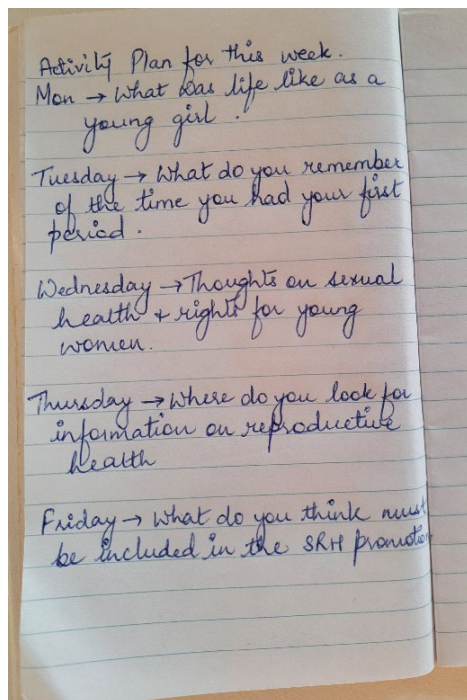 Activity Plan for this week.
Mon → What was life like as a
young girl.
Tuesday → What do you remember
of the time you had your first
period.
Wednesday → Thoughts on sexual
health + rights for young
women.
Thursday → Where do you look for
information on reproductive
health
Friday → What do you think must
be included in the SRH promotion